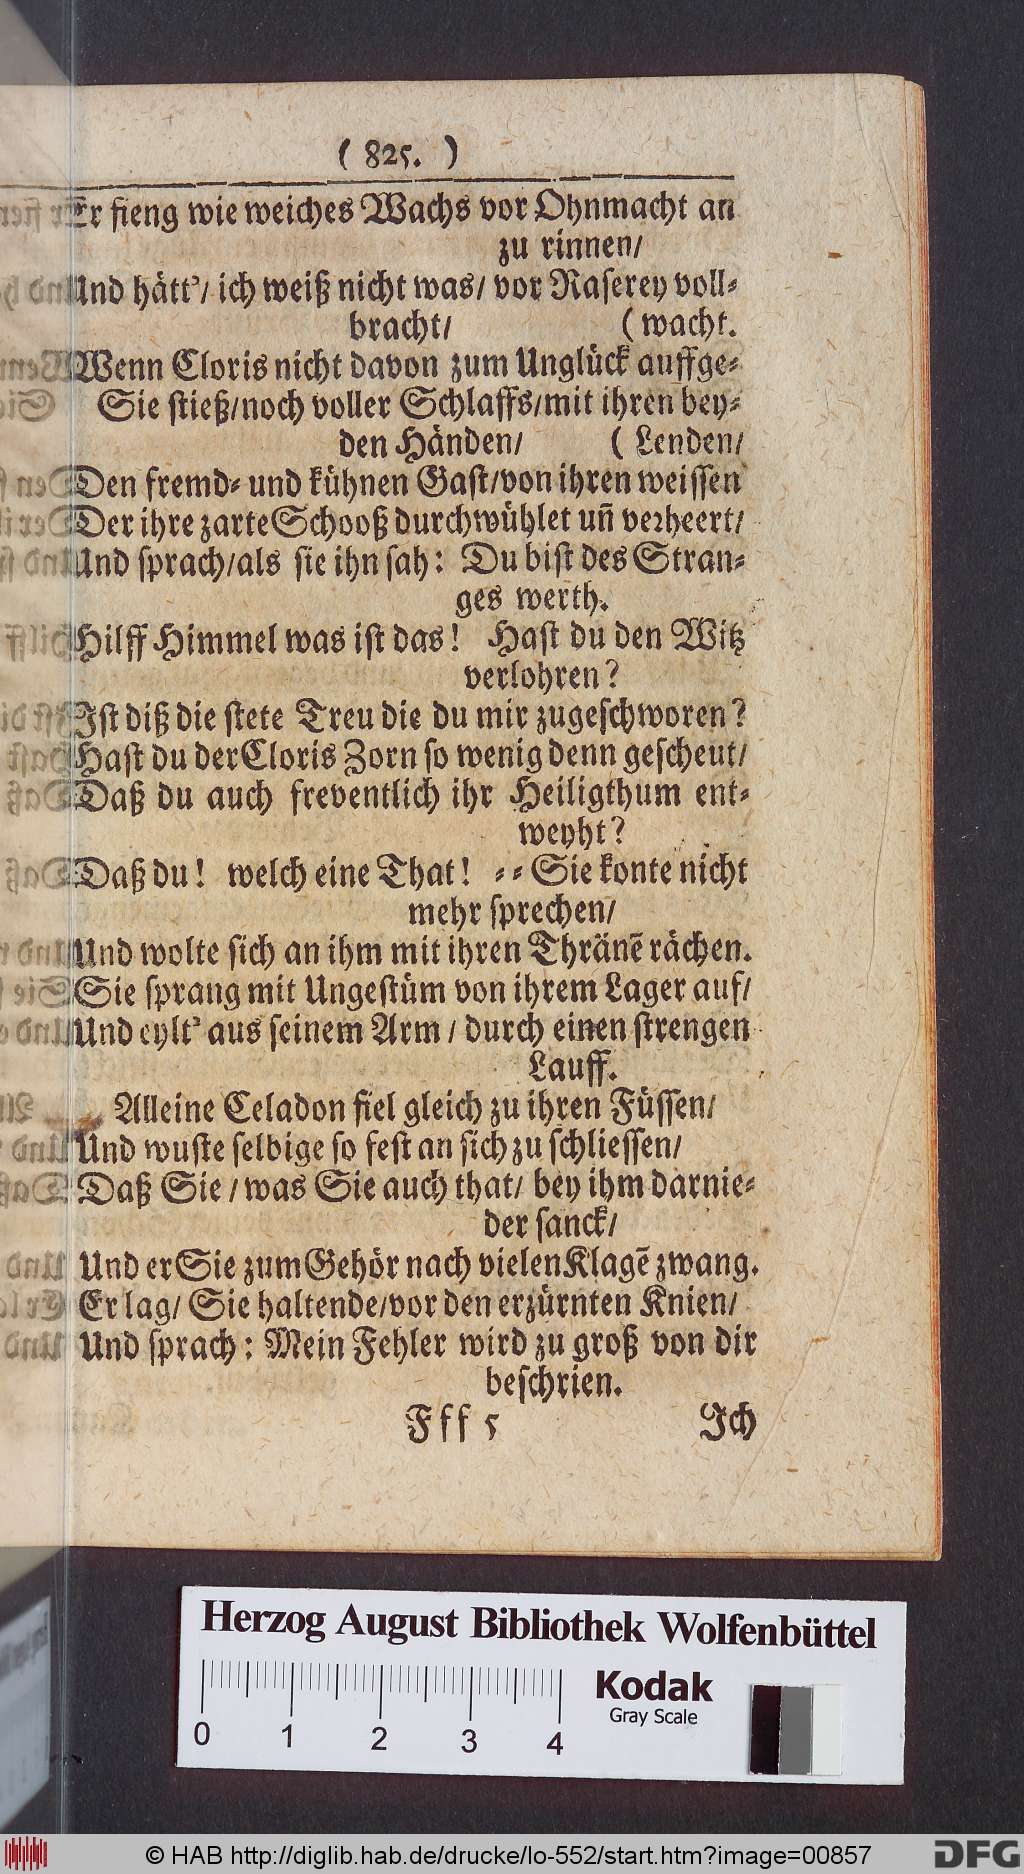 ( 825. )
Er fieng wie weiches Wachs vor Ohnmacht an
zu rinnen/
Und hätt’/ ich weiß nicht was/ vor Raserey voll⸗
bracht/ ( wacht.
Wenn Cloris nicht davon zum Unglück auffge⸗
Sie stieß/noch voller Schlaffs/mit ihren bey⸗
den Händen/ ( Lenden/
Den fremd⸗ und kühnen Gast/von ihren weissen
Der ihre zarte Schooß durchwühlet uñ veꝛheert/
Und sprach/als sie ihn sah: Du bist des Stran⸗
ges werth.
Hilff Himmel was ist das! Hast du den Witz
verlohren?
Ist diß die stete Treu die du mir zugeschworen?
Hast du der Cloris Zorn so wenig denn gescheut/
Daß du auch freventlich ihr Heiligthum ent⸗
weyht?
Daß du! welch eine That! ⸗⸗ Sie konte nicht
mehr sprechen/
Und wolte sich an ihm mit ihren Thränẽ rächen.
Sie sprang mit Ungestüm von ihrem Lager auf/
Und eylt’ aus seinem Arm / durch einen strengen
Lauff.
Alleine Celadon fiel gleich zu ihren Füssen/
Und wuste selbige so fest an sich zu schliessen/
Daß Sie / was Sie auch that/ bey ihm darnie⸗
der sanck/
Und er Sie zum Gehör nach vielen Klagẽ zwang.
Er lag/ Sie haltende/vor den erzürnten Knien/
Und sprach: Mein Fehler wird zu groß von dir
beschrien.
Fff 5 Ich
Herzog August Bibliothek Wolfenbüttel
Kodak
Gray Scale
0 1 2 3 4
© HAB http://diglib.hab.de/drucke/lo-552/start.htm?image=00857
DFG